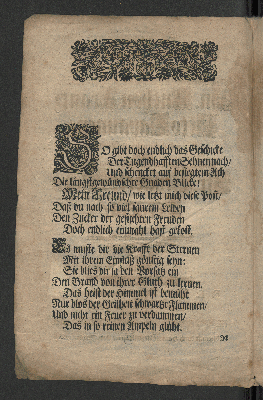 SO gibt doch endlich das Geschicke
Der Tugendhafften Sehnen nach/
Und schencket auf besiegtem Ach
Die längst gewünschte Gnaden Blicke:
Mein Freund/ wie letzt mich diese Post/
Daß du nach so viel herben Leiden
Den Zucker der gesuchten Freuden
Doch endlich einmahl hast gekost.
Es muste dir die Krafft der Sternen
Mit ihrem Einfluß günstig seyn:
Sie blies dir ja den Vorsatz ein
Den Brand von ihrer Gluth zu lernen.
Das heist der Himmel ist bemüht
Nur blos der Geilheit schwartze Flammen/
Und nicht ein Feuer zu verdammen/
Das in so reinen Ampeln glüht.